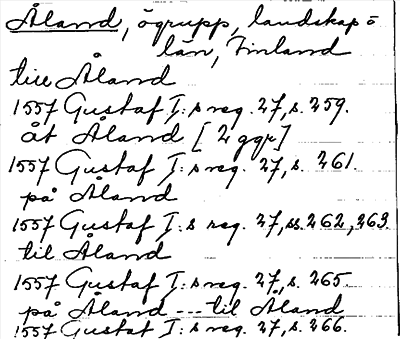 Åland, ögrupp, landskap o
län, Finland
till Åland
1557 Gustaf I:s reg. 27, s. 259.
åt Åland [2 ggr]
1557 Gustaf I:s reg. 27, s. 261.
på Åland
1557 Gustaf I:s reg. 27, ss. 262, 263.
til Åland
1557 Gustaf I:s reg. 27, s. 265.
på Åland --- til Åland
1557 Gustaf I:s reg. 27, s. 266.